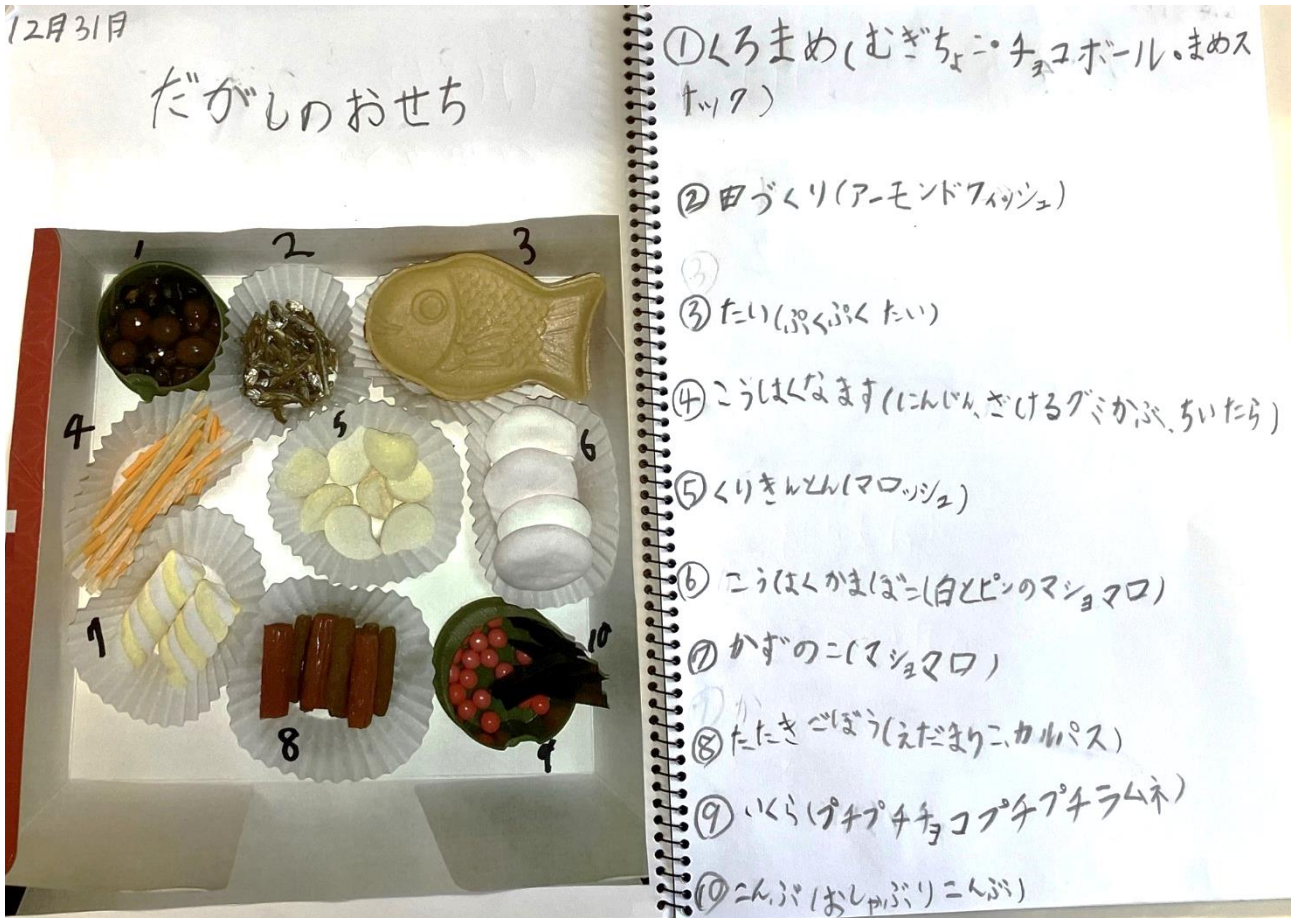 12月31日
だがしのおせち
1
2
3
4
5
6
7
8
9
10
①くろまめ(むぎちょこ・チョコボール・まめス
ナック)
②田づくり(アーモンドフィッシュ)
③
③たい(ぷくぷくたい)
④こうはくなます(にんじん、さけるグミかぶ、ちいたら)
⑤くりきんとん(マロッシュ)
⑥こうはくかまぼこ(白とピンのマショマロ)
⑦かずのこ(マショマロ)
⑧たたきごぼう(えだまりこ、カルパス)
⑨いくら(プチプチチョコプチプチラムネ)
⑩こんぶ(おしゃぶりこんぶ)